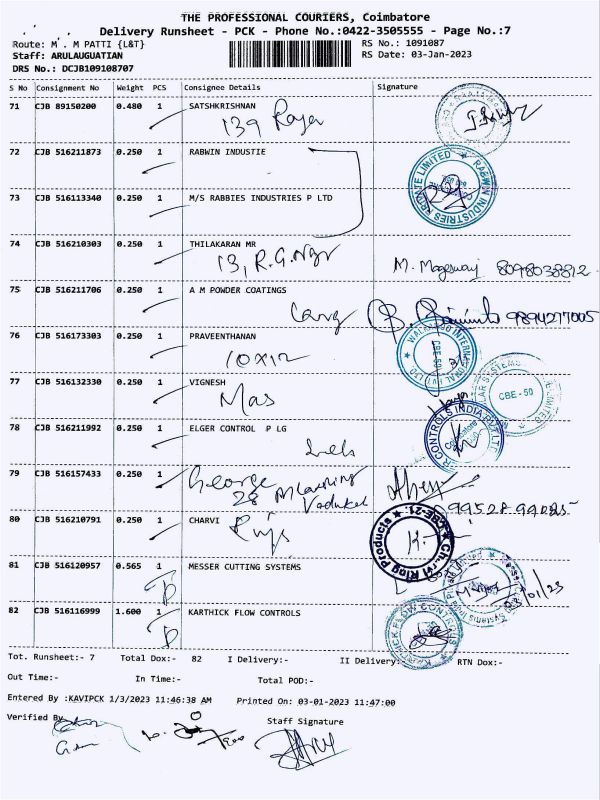 THE PROFESSIONAL COURIERS, Coimbatore
Delivery Runsheet - PCK - Phone No.:0422-3505555 - Page No.:7
Route: M . M PATTI {L&T}
RS No.: 1091087
Staff: ARULAUGUATIAN
RS Date: 03-Jan-2023
DRS No.: DCJB109108707
S No Consignment No Weight PCS Consignee Details Signature
71 CJB 89150200 0.480 1 SATSHKRISHNAN
139 Raja
72 CJB 516211873 0.250 1 RABWIN INDUSTIE
RABWIN INDUSTRIES PRIVATE LIMITED
73 CJB 516113340 0.250 1 M/S RABBIES INDUSTRIES P LTD
74 CJB 516210303 0.250 1 THILAKARAN MR
13, R.G.Ngr M. Mageswari 8098038812
75 CJB 516211706 0.250 1 A M POWDER COATINGS
9894217005
76 CJB 516173303 0.250 1 PRAVEENTHANAN
10x12
77 CJB 516132330 0.250 1 VIGNESH
Mas
CBE-50
78 CJB 516211992 0.250 1 ELGER CONTROL P LG
CONTROLS INDIA PVT LTD
79 CJB 516157433 0.250 1 George
28
99528
80 CJB 516210791 0.250 1 CHARVI
Rings
Charvi Ring Products CBE-21
81 CJB 516120957 0.565 1 MESSER CUTTING SYSTEMS
03/01/23
82 CJB 516116999 1.600 1 KARTHICK FLOW CONTROLS
KARTHICK FLOW CONTROLS
Tot. Runsheet:- 7 Total Dox:- 82 I Delivery:- II Delivery:- RTN Dox:-
Out Time:- In Time:- Total POD:-
Entered By :KAVIPCK 1/3/2023 11:46:38 AM Printed On: 03-01-2023 11:47:00
Verified By
Staff Signature